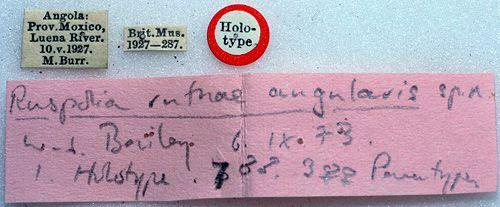 Angola:
Prov. Moxico,
Luena River.
10.v.1927.
M. Burr.
Brit. Mus.
1927—287.
Holo-
type.
Ruspolia ruthae angularis sp. n.
Bailey. 6. ix. 73.
1. Holotype. 7 ♂♂. 3 ♀♀ Paratypes